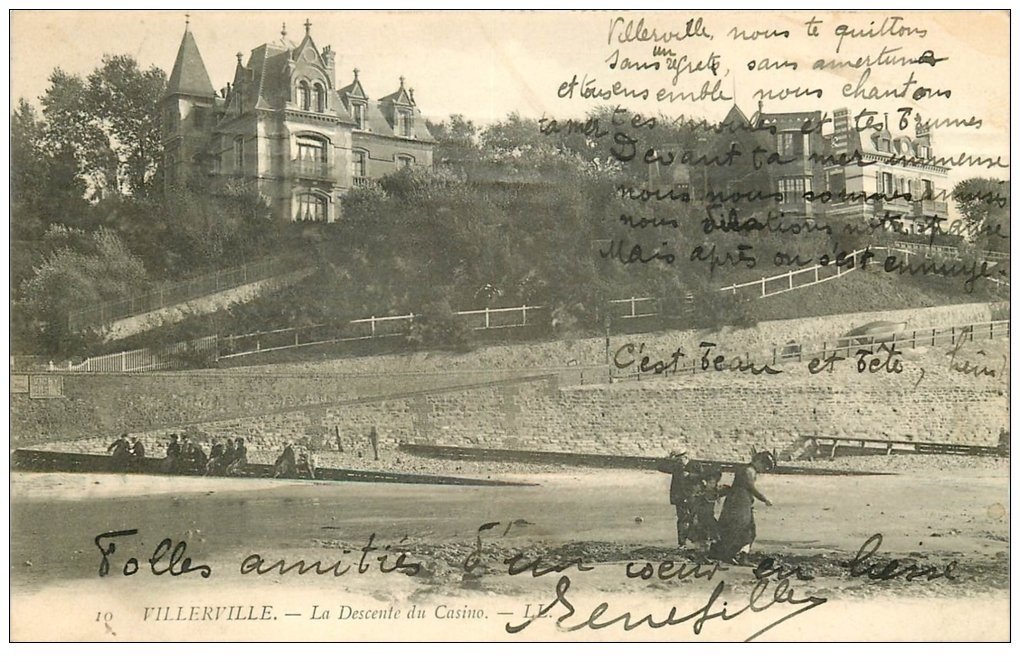 Villerville, nous te quittons
Sans un regret, sans amertume
et tous ensemble nous chantons
ta mer tes moules et tes brumes
Devant ta mer immense
nous nous sommes
nous notre
Mais après on s'est ennuyé.
C'est beau et bête, hein!
Folles amitiés d'un cœur en
10 VILLERVILLE. — La Descente du Casino. — LL.